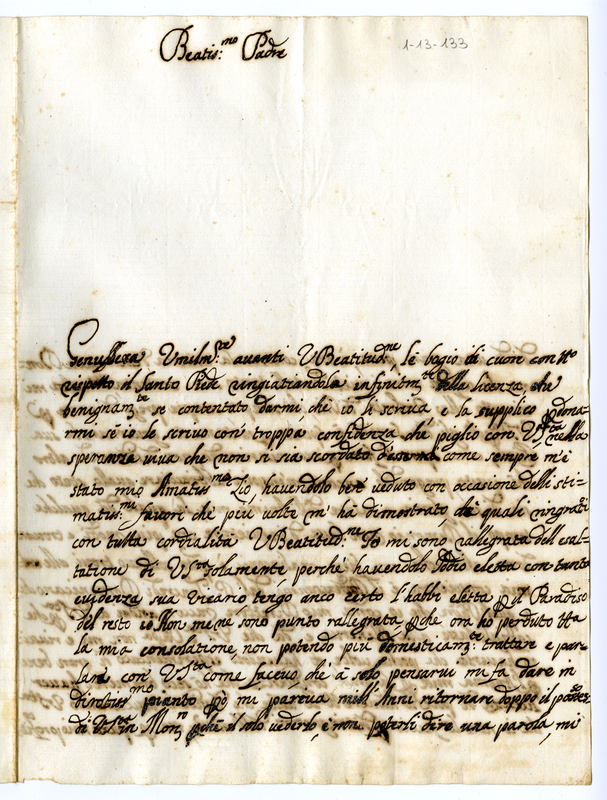 Beatis:mo Padre
1-13-133
Genuflessa Umilm:te avanti VBeatitud:ne, le bagio di cuore con tto
rispetto il Santo Piede ringiatiandola infinitm:te della licenza, che
benignam:te se contentato darmi, che io li scriva e la supplico pdona-
rmi se io le scrivo con troppa confidenza che piglio con VSta nella
speranza viva che non si sia scordato d'esserne come sempre m'è
stato mio Amatiss:mo Zio, havendolo bene veduto con occasione dell'sti-
matiss:mi favori che più volte m'ha dimostrato, de quali ringratio
con tutta cordialità VBeatitud:ne Io mi sono rallegrata dell'esal-
tatione di VSta solamente, perche havendolo Iddio eletta con tanta
evidenza sua Vicario, tengo anco certo l'habbi eletta p il Paradiso
del resto io Non me ne sono punto rallegrata pche ora ho perduto tta
la mia consolatione, non potendo più domesticam:te trattare e par-
lare con VSta come facevo, che à solo pensarvi mi fa dare in
dirotiss:mo pianto, pò mi pareva mill'Anni ritornare doppo il
di VSta in Mon:rio pche il solo vederlo, e non poterli dire una parola, mi